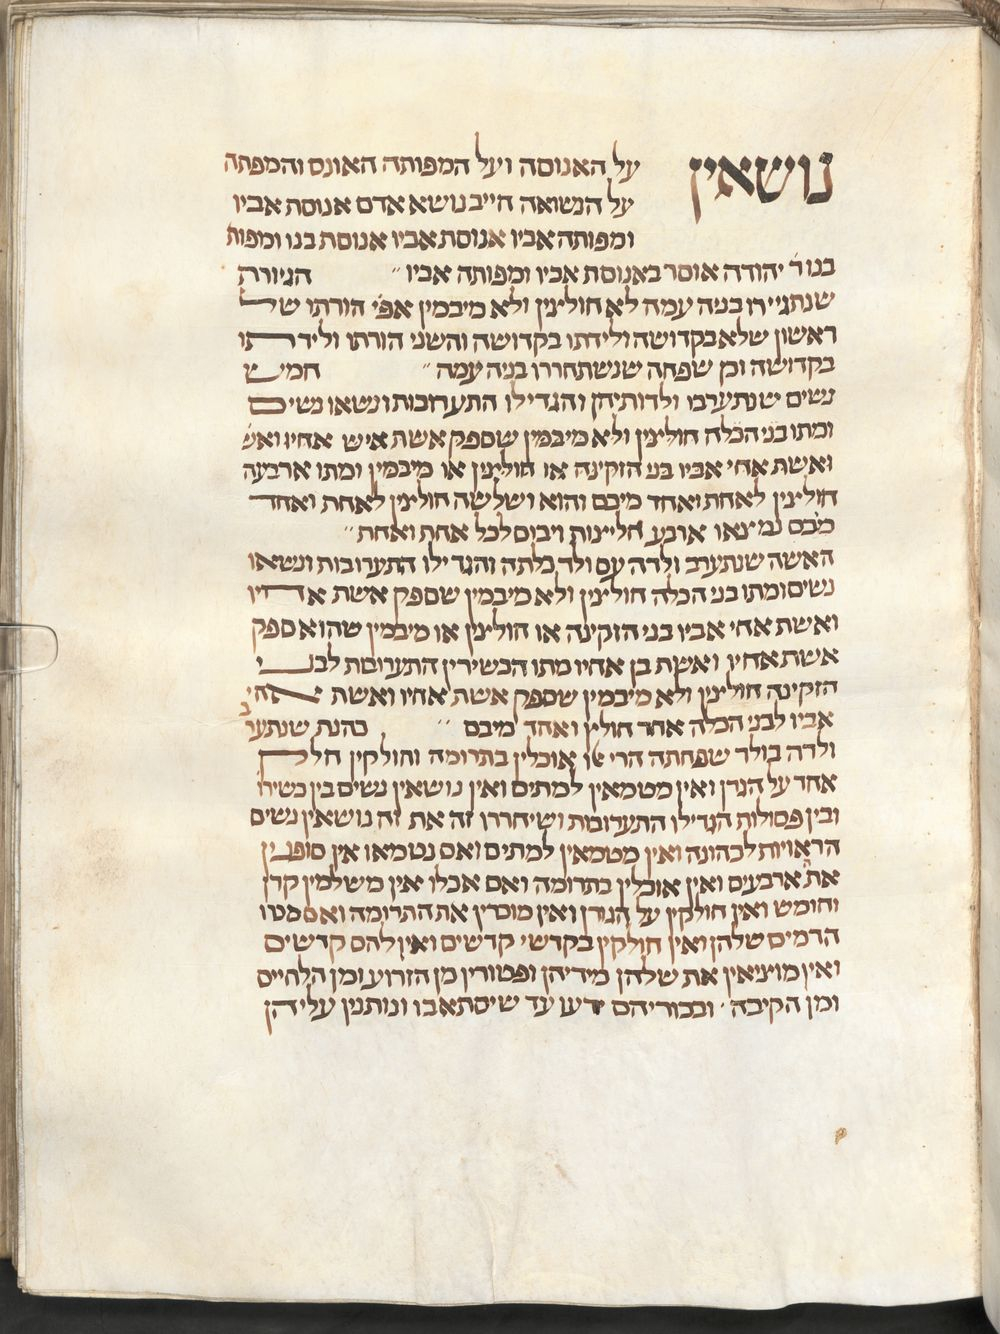 נושאין על האנוסה ועל המפותה האונס והמפתה
על הנשואה חייב נושא אדם אנוסת אביו
ומפותה אביו אנוסת אביו אנוסת בנו ומפות
בנו ר' יהודה אוסר באנוסת אביו ומפותה אביו ״ הגיורת
שנתגיירו בניה עמה לא חולצין ולא מיבמין אפי' הורתו של
ראשון שלא בקדושה ולידתו בקדושה והשני הורתו ולידתו
בקדושה וכן שפחה שנשתחררו בניה עמה ״ חמיש
נשים שנתערבו ולדותיהן והגדילו התערובות ונשאו נשים
ומתו בני הכלה חולצין ולא מיבמין שספק אשת איש אחיו ואש
ואשת אחי אביו בני הזקינה או חולצין או מיבמין ומתו ארבעה
חולצין לאחת ואחד מיבם והוא ושלשה חולצין לאחת ואחד
מבם נמצאו ארבע חליצות ויבום לכל אחת ואחת ״
האשה שנתערב ולדה עם ולד כלתה והגדילו התערובות ונשאו
נשים ומתו בני הכלה חולצין ולא מיבמין שספק אשת אחיו
ואשת אחי אביו בני הזקינה או חולצין או מיבמין שהוא ספק
אשת אחיו ואשת בן אחיו מתו הכשירין התערובת לבני
הזקינה חולצין ולא מיבמין שספק אשת אחיו ואשת אחי
אביו לבני הכלה אחד חולץ ואחד מיבם ״ כהנת שנתערב
ולדה בולד שפחתה הרי או אוכלין בתרומה וחולקין חלק
אחד על הגרן ואין מטמאין למתים ואין נושאין נשים בין כשירו
ובין פסולות הגדילו התערובות ושיחררו זה את זה נושאין נשים
הראויות לכהונה ואין מטמאין למתים ואם נטמאו אין סופגין
את ארבעים ואין אוכלין בתרומה ואם אכלו אין משלמין קרן
וחומש ואין חולקין על הגורן ואין מוכרין את התרומה ואססטו
הדמים שלהן ואין חולקין בקדשי קדשים ואין להם קדשים
ואין מוציאין את שלהן מידיהן ופטורין מן הזרוע ומן הלחיים
ומן הקיבה ׳ ובכוריהם ירעו עד שיסתאבו ונותנין עליהן